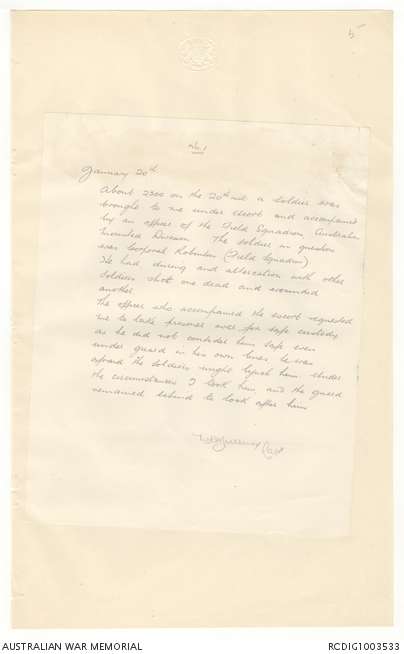 5
No. 1
January 20th
About 2300 on the 20th inst a soldier was
brought to me under escort and accompanied
by an officer of the Field Squadron Australian
Mounted Division. The soldier in question
was Corporal Robinson (Field Squadron)
He had during and altercation with other
soldiers shot one dead and wounded
another.
The officer who accompanied the escort requested
me to take prisoner over for safe custody
as he did not consider him safe even
under guard in his own lines he was
afraid the soldiers might lynch him. Under
the circumstances I took him and the guard
remained behind to look after him
Capt
AUSTRALIAN WAR MEMORIAL
RCDIG1003533